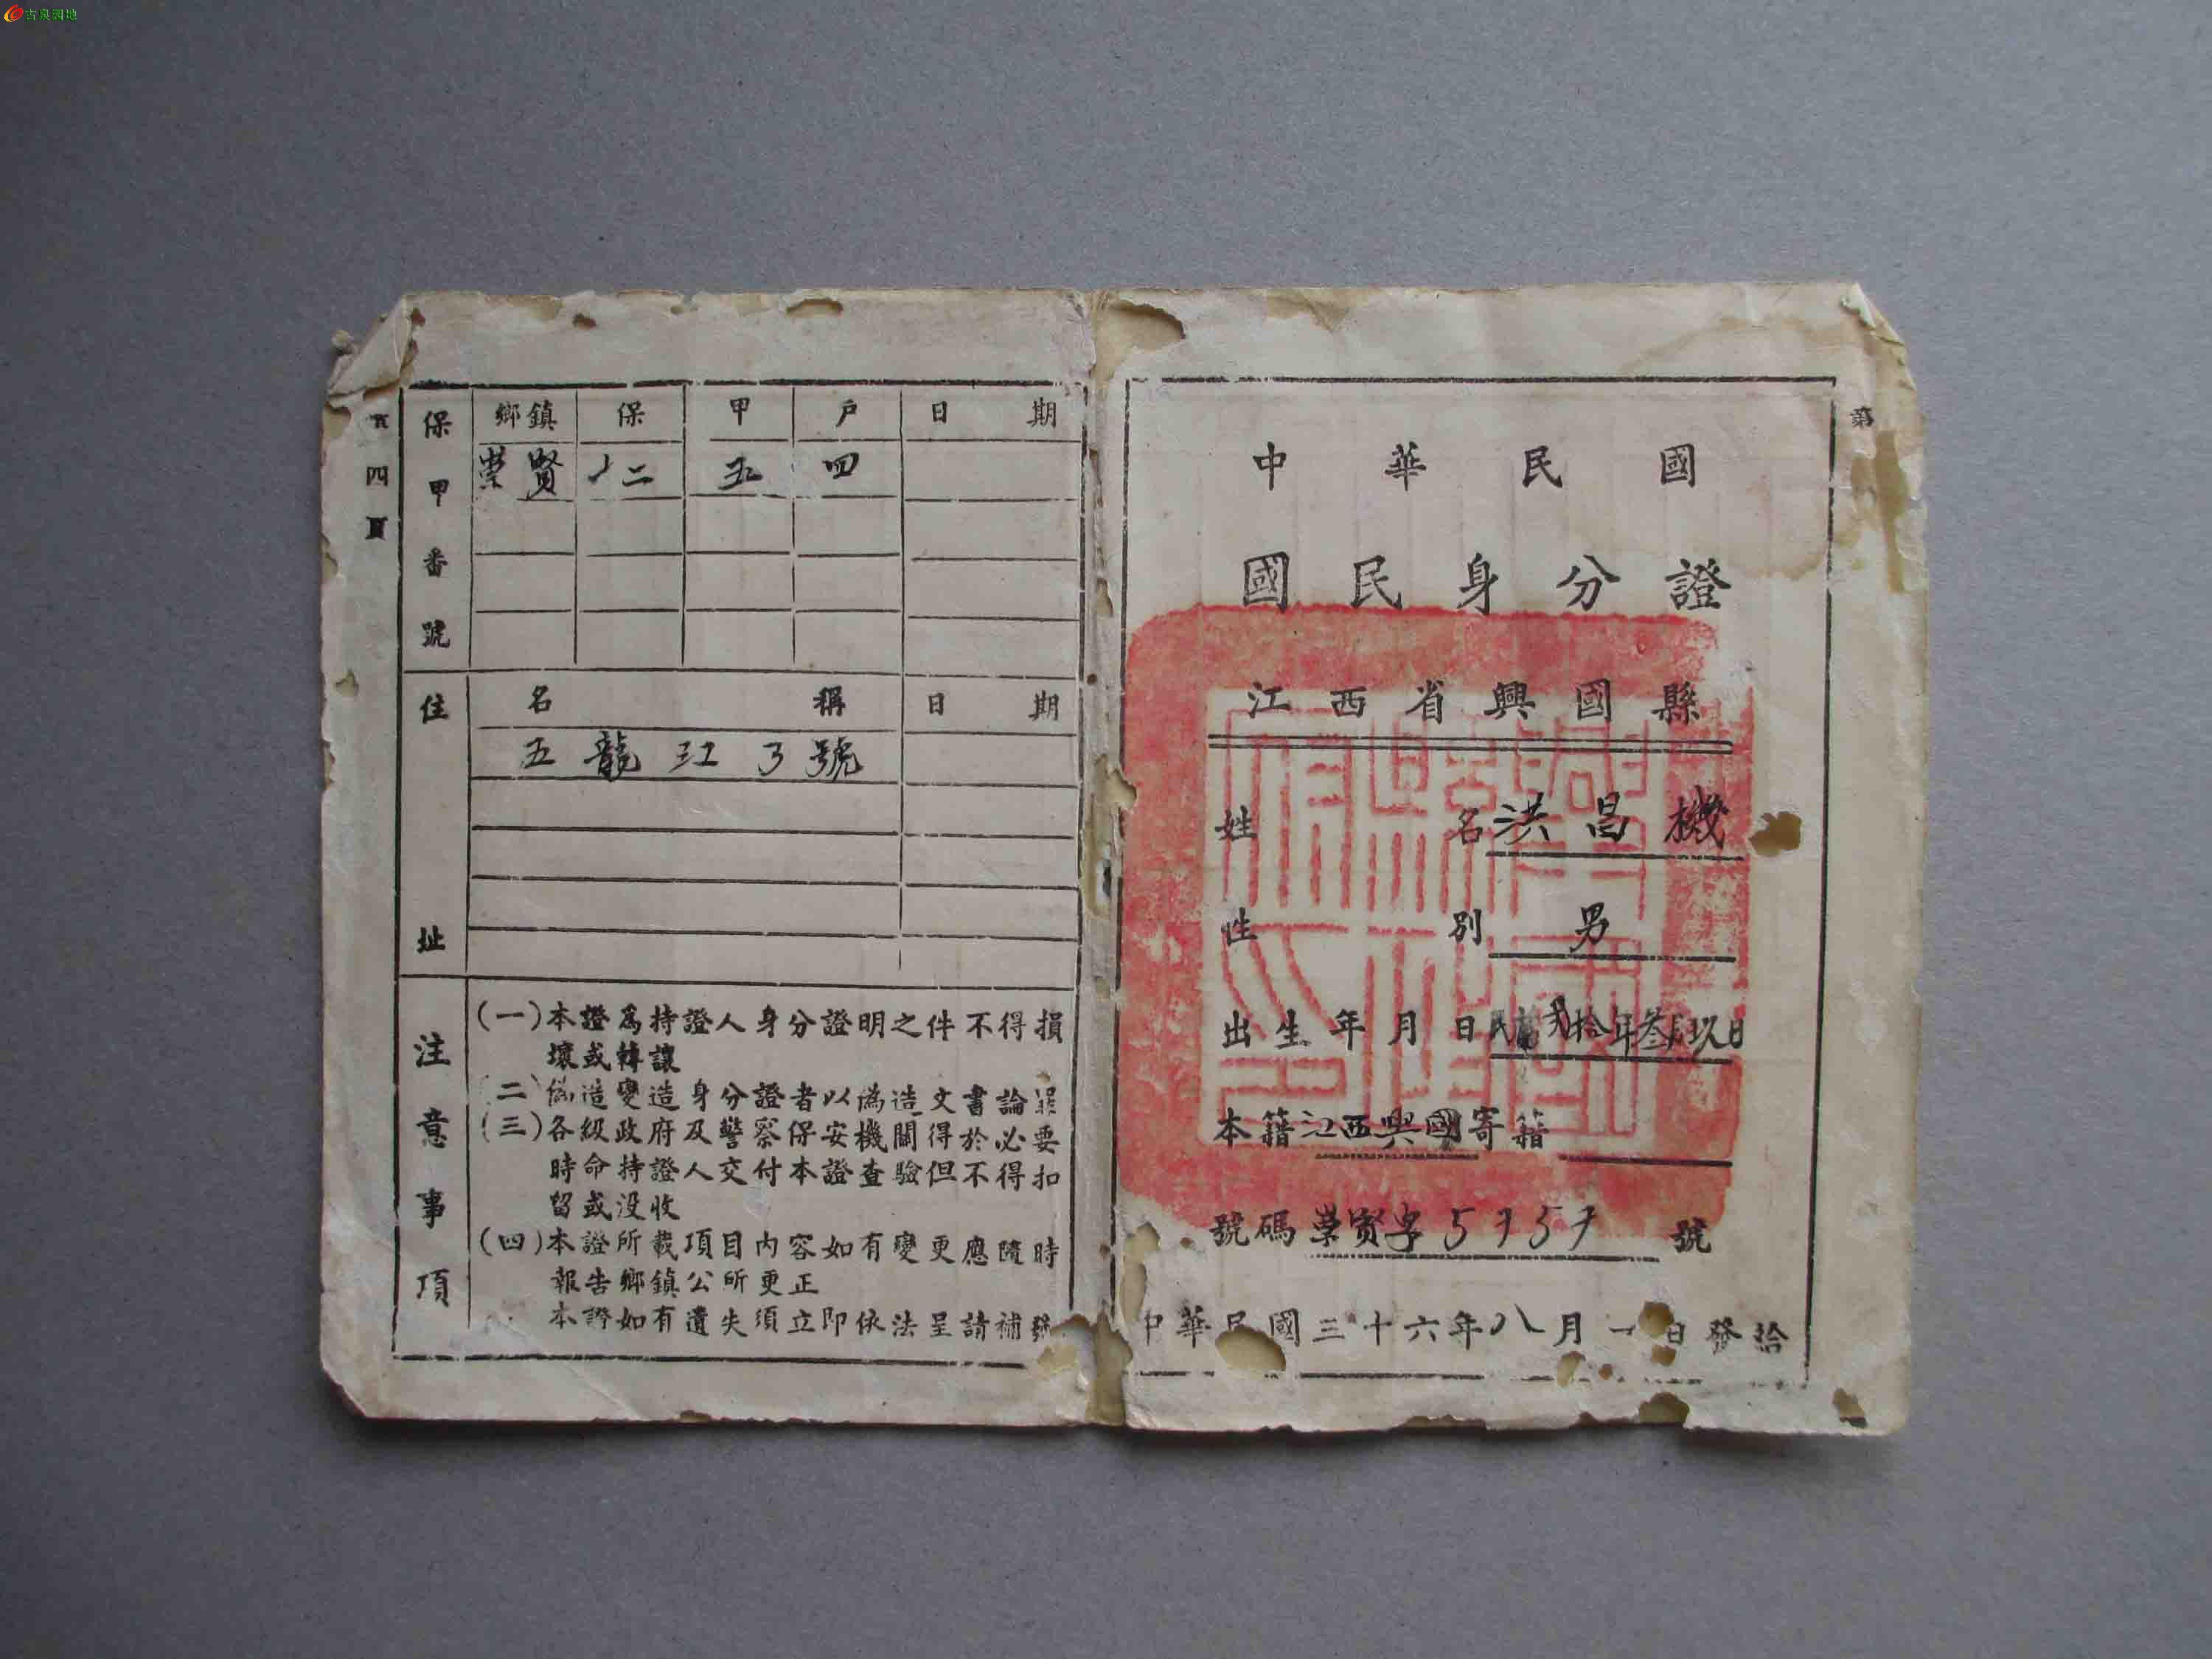 古泉园地
四
頁
保甲番號
鄉鎮 保 甲 戶 日期
崇賢 十二 五 四
住址
名稱 日期
五龍江 號
注意事項
(一)本證爲持證人身分證明之件不得損
壞或轉讓
(二)偽造變造身分證者以偽造文書論罪
(三)各級政府及警察保安機關得於必要
時命持證人交付本證查驗但不得扣
留或没收
(四)本證所載項目內容如有變更應隨時
報告鄉鎮公所更正
本證如有遺失須立即依法呈請補發
第
中華民國
國民身分證
江西省興國縣
姓名 洪昌機
性別 男
出生年月日 民國貳拾年叁月玖日
本籍 江西興國 寄籍
號碼 崇賢字 號
中華民國三十六年八月一日發給